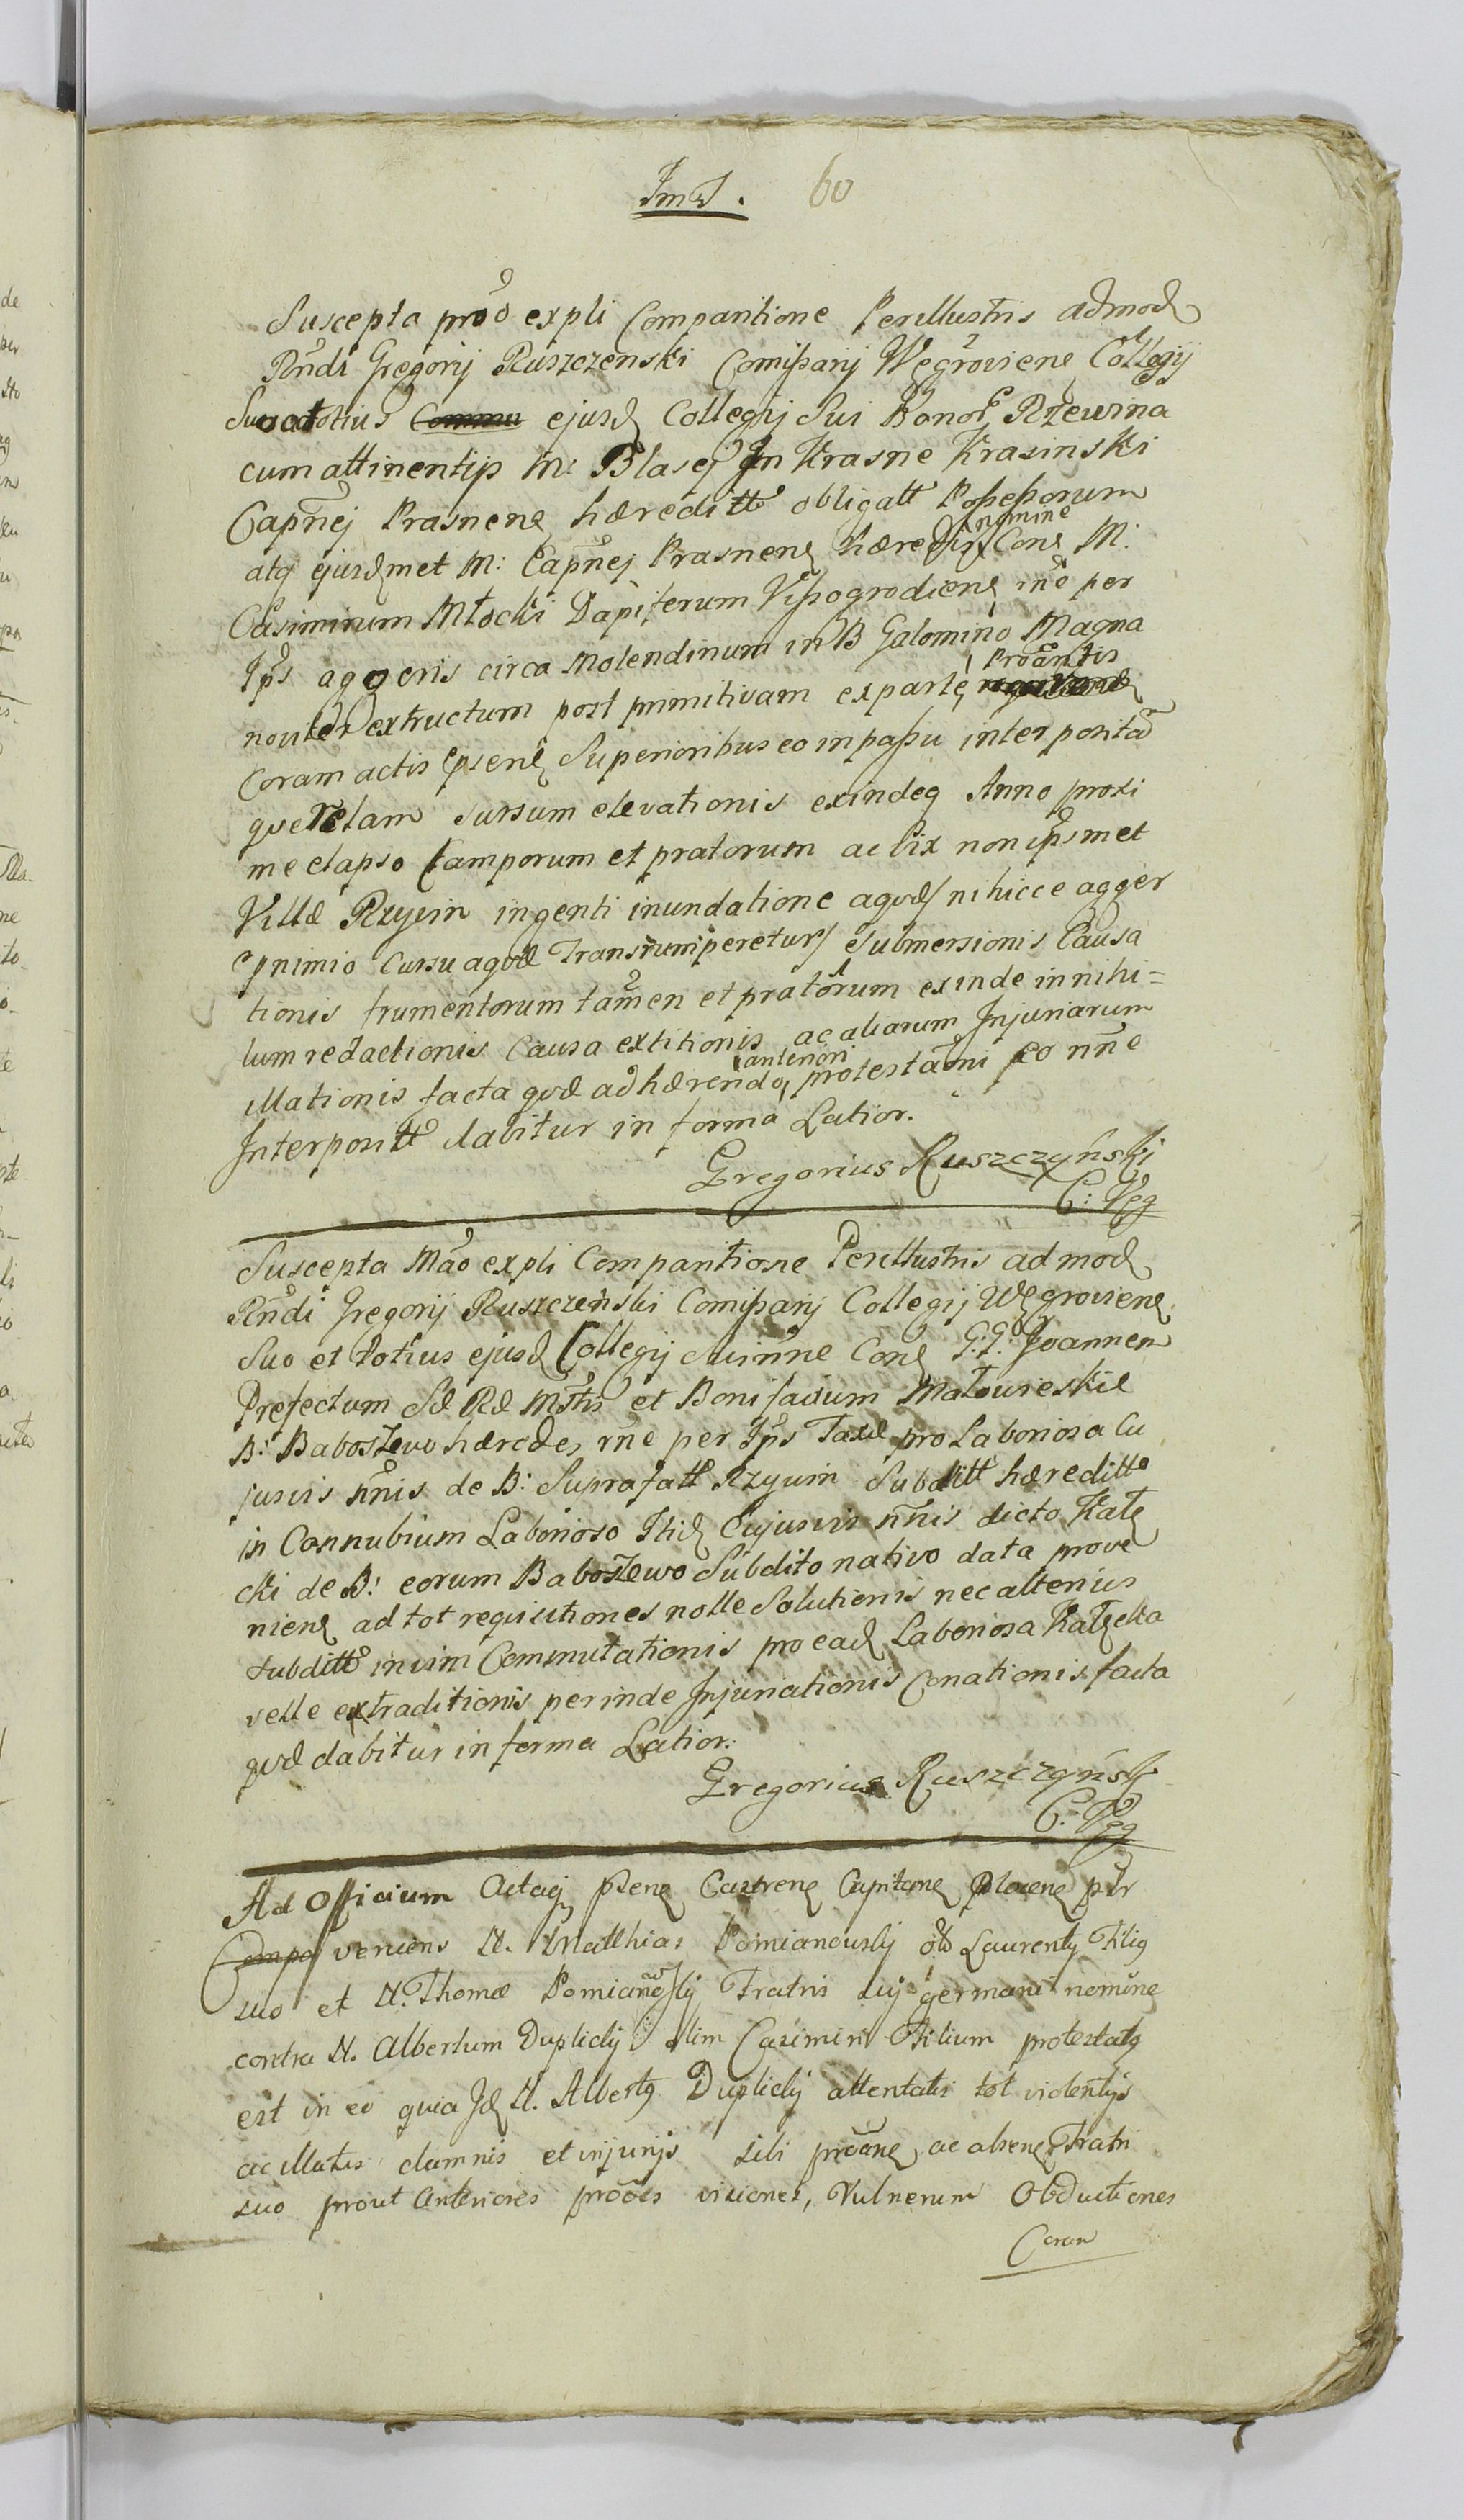 60
Suscepta proo expli Comparitione Perillustris admod
Rndi Gregorij Ruszczenski Comißarij Węgroviene Collegij
Suo ac totius Commu ejusd Collegij Sui Bonor Rzewina
cum attinentijs M: Blasej In Krasne Krasinski
Capnej Prasnene hæreditt obligatt Poßeßorum
atq ejusdmet M: Capnej Prasnene hæredis nomine Cone M:
Casimirum Młocki Dapiferum Vißogrodiene rne per
Ips aggeris circa Molendinum in B Galomino Magna
noviter extructum post primitivam ex parte proantis
Coram actis psene Superioribus eo in paßu interposita
querelam sursum elevationis exindeq Anno proxi
me elapso Camporum et pratorum ac vix non ipsmet
Villæ Rzyvin ingenti inundatione aquæ/ ni hicce agger
e nimio Cursu aquæ transrumperetur/ Submersionis Causa
tionis frumentorum tamen et pratorum exinde in nihi=
lum redactionis Causa extitionis ac aliarum Injuriarum
illationis facta quæ adhærendo anteriori protestaoni eo nne
Interpositt dabitur in forma Latior.
Gregorius Ruszczyński
C: Węg
Suscepta Mao expli Comparitione Perillustris admod
Rndi Gregorij Ruszczeński Comißarij Collegij Węgroviene
Suo et totius ejusd Collegij sui nne Cone G:G: Joannem
Prefectum Sæ Ræ Mtis et Bonifacium Matowieskie
B: Baboszewo hæredes rne per Ips Taxæ pro Laboriosa Cu
jusvis nnis de B: Suprafatt Rzyvin Subditt hæreditt
in Connubium Laborioso Itid Cujusvis nnis dicto Kałę
cki de B: eorum Baboszewo Subdito nativo data prove
niene ad tot requisitiones nolle Solutionis nec alterius
subditt in vim Commutationis pro ead Laboriosa Kałęcka
velle extraditionis perinde Injuriationis Conationis facta
quæ dabitur in forma Latior.
Gregorius Ruszczyński
C: Węg
Ad Officium Actaq psene Castrene Capitane Plocene psr
Compa veniens N. Matthias Pomianowsky olo Laurenty Filig
suo et N. Thomæ Pomianowsky Fratris sui germani nomine
contra N. Albertum Duplicky olim Casimiri Filium protestatg
est in eo quia Id N. Albertg Duplicky attentatis tot violentijs
ac illatis damnis et injurijs sibi proane ac absene Fratri
suo prout anteriores prooes visiones, Vulnerum Obductiones
Coram